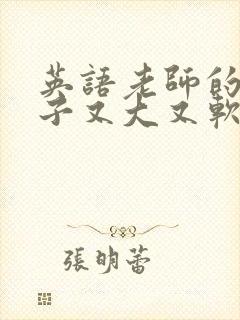 英語老師的
子又大又軟
張明蕾